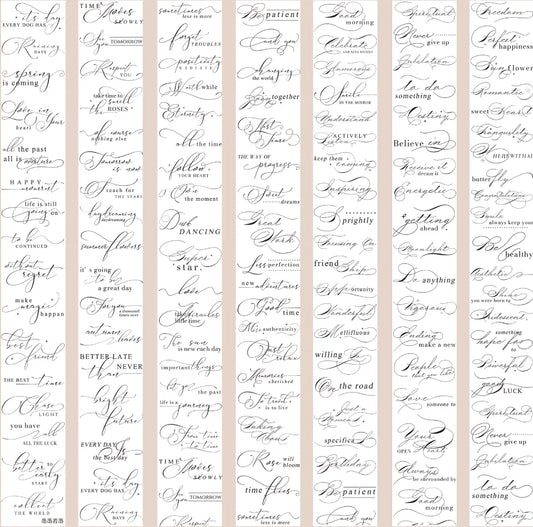 it's day
EVERY DOG HAS
Raining
DAYS
spring
is coming
Love in
Your
heart
all the past
all is
HAPPY
moment
life is still
going on
to be
CONTINUED
without
regret
make
magic
happan
best
friend
THE BEST time
Chase
LIGHT
you have
all
ALL THE LUCK
better to
early
START
collect
THE WORLD
TIME
goes
SLOWLY
See
you
TOMORROW
Respect
YOU
take time to
smell
the
ROSES
of course
nothing else
Tomorrow
is now
reach for
THE STARS
daydreaming
daydreaming
summer flowers
it's going
to be
a great day
For you
a thousand
times over
BETTER LATE
than
NEVER
bright
future
EVERY DAY Is
the best day
it's day
EVERY DOG HAS
Raining
DAYS
TIME
goes
SLOWLY
See
you
TOMORROW
Respect
sometimes
less is more
forget
TROUBLES
positivity
RADIATE
Worth while
Eternity
all the time
follow
YOUR HEART
in
the moment
Dive
DANCING
Super
star.
love
the miracles
little time
The sun
is new each day
important things
let go
the past
life is a
journey
From time
to time
TIME
goes
SLOWLY
See
you
TOMORROW
Respect
Be patient
and you
changing
the world
Grow together
Lost
Time
THE WAY OF
progress
Sweet
dreams
Great
Work
Less perfection
new adventures
Good
time
More authenticity
Just
relax
Memories
cherished
To travel
is to live
Talking
About
Rose will
bloom
time flies
sometimes
less is more
Good
morning
Celebrate
Glamorous
Smile
IN THE MIRROR
Understand
ACTIVELY
Listen
keep them
coming
Inspiring
Sprightly
Focusing On
friend Ship
Opportunity
Wonderful
Mellifluous
willing To
On the road
Just a
Moment
specifica
Birthday
Be patient
and you
Good
morning
Spiritual
Never
give up
Jubilation
to do
something
Destiny
Believe in
Receive it
dream it
Energetic
getting
ahead
Moonlight
Do anything
Gigarous
Ending
make a new
People
that you like
Love
someone to
Your
OPEN
early
Always
be surrounded by
Good
morning
Freedom
Perfect
happiness
Sun flower
Romantic
sweet Heart
Tranquility
With
HERSWITNAL
butterfly
Congratulations
Smile
always keep your
Be
healthy
Aesthetic
Shine
you were born to
Iridescent
something
hope for
to
Powerful
good
LUCK
Spiritual
Never
give up
Jubilation
to do
something
Destiny